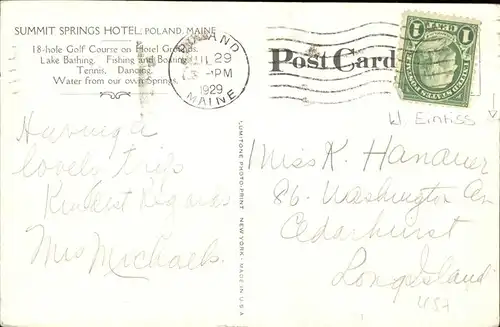 SUMMIT SPRINGS HOTEL, POLAND, MAINE
18-hole Golf Course on Hotel Grounds.
Lake Bathing. Fishing and Boating.
Tennis, Dancing.
Water from our own Springs.
POLAND
JUL 29
3 -PM
1929
MAINE
Post Card
1 CENT 1
Kl Eintiss
Having a
lovely trip
Kindest Regards
Mrs Michaels.
LUMITONE PHOTOPRINT NEW YORK - MADE IN U.S.A
Miss K. Hanauer
86 Washington Av
Cedarhurst
Long Island
USA